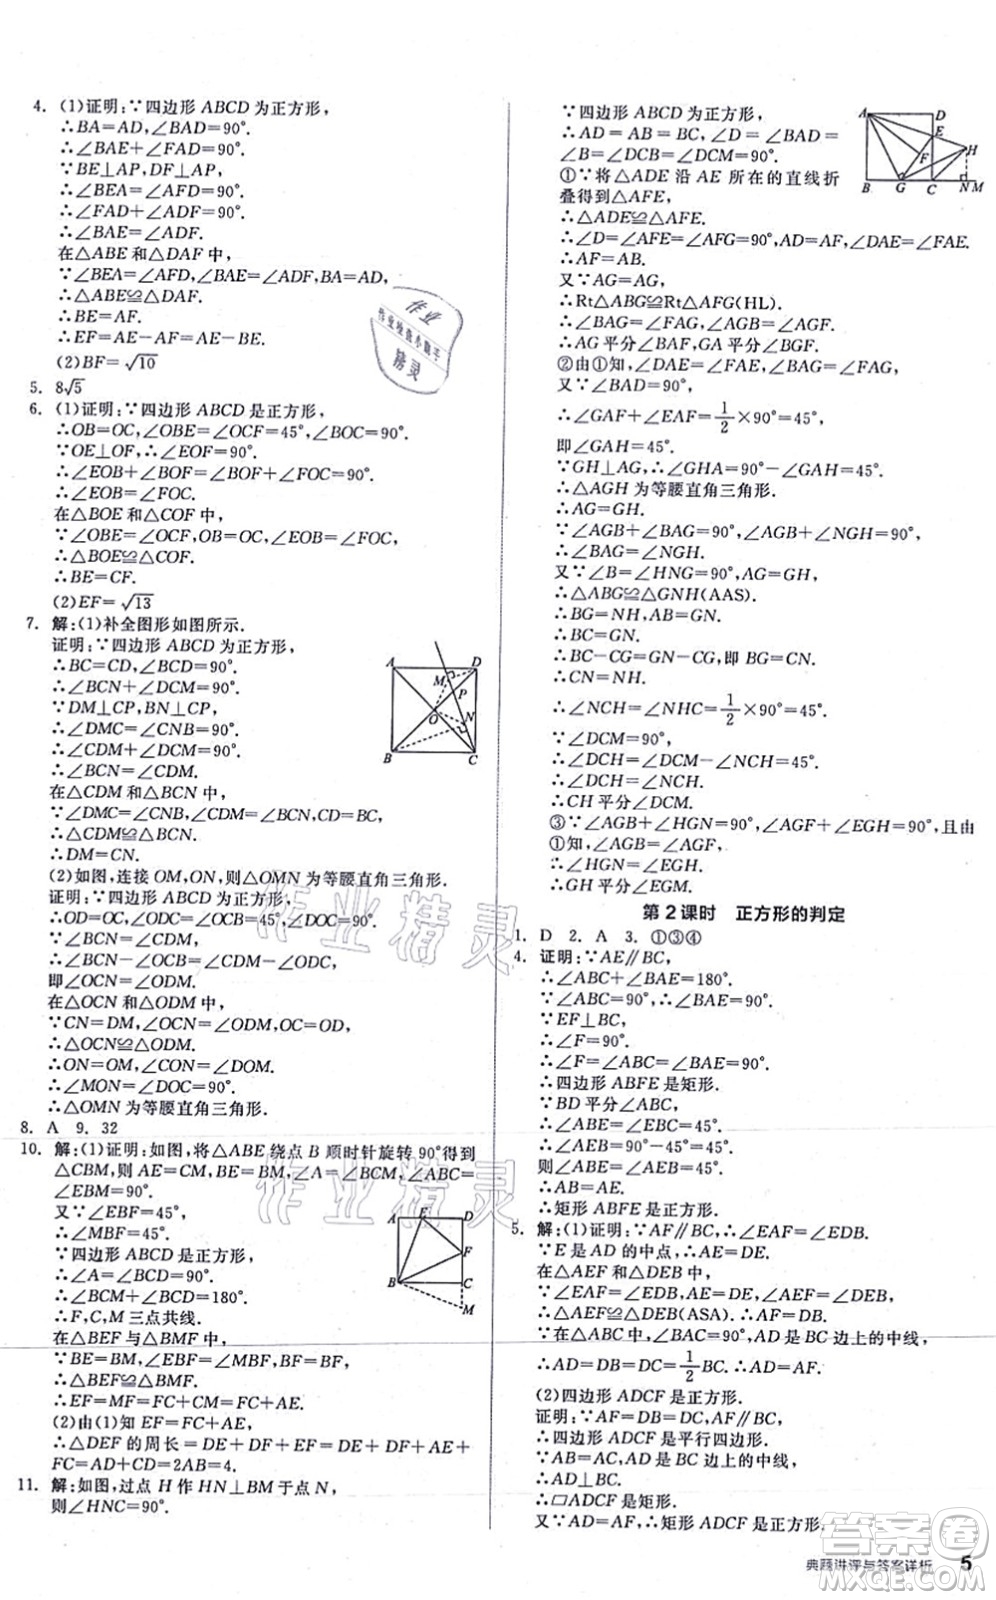 4. (1)证明:∵四边形 ABCD 为正方形,
∴BA=AD,∠BAD=90°.
∴∠BAE+∠FAD=90°.
∵BE⊥AP,DF⊥AP,
∴∠BEA=∠AFD=90°.
∴∠FAD+∠ADF=90°.
∴∠BAE=∠ADF.
在△ABE 和△DAF 中,
∵∠BEA=∠AFD,∠BAE=∠ADF,BA=AD,
∴△ABE≌△DAF.
∴BE=AF.
∴EF=AE-AF=AE-BE.
(2)BF=√10
5. 8√5
6. (1)证明:∵四边形 ABCD 是正方形,
∴OB=OC,∠OBE=∠OCF=45°,∠BOC=90°.
∵OE⊥OF,∴∠EOF=90°.
∴∠EOB+∠BOF=∠BOF+∠FOC=90°.
∴∠EOB=∠FOC.
在△BOE 和△COF 中,
∵∠OBE=∠OCF,OB=OC,∠EOB=∠FOC,
∴△BOE≌△COF.
∴BE=CF.
(2)EF=√13
7. 解:(1)补全图形如图所示.
证明:∵四边形 ABCD 为正方形,
∴BC=CD,∠BCD=90°.
∴∠BCN+∠DCM=90°.
∵DM⊥CP,BN⊥CP,
∴∠DMC=∠CNB=90°.
∴∠CDM+∠DCM=90°.
∴∠BCN=∠CDM.
在△CDM 和△BCN 中,
∵∠DMC=∠CNB,∠CDM=∠BCN,CD=BC,
∴△CDM≌△BCN.
∴DM=CN.
(2)如图,连接 OM,ON,则△OMN 为等腰直角三角形.
证明:∵四边形 ABCD 为正方形,
∴OD=OC,∠ODC=∠OCB=45°,∠DOC=90°.
∵∠BCN=∠CDM,
∴∠BCN-∠OCB=∠CDM-∠ODC,
即∠OCN=∠ODM.
在△OCN 和△ODM 中,
∵CN=DM,∠OCN=∠ODM,OC=OD,
∴△OCN≌△ODM.
∴ON=OM,∠CON=∠DOM.
∴∠MON=∠DOC=90°.
∴△OMN 为等腰直角三角形.
8. A 9. 32
10. 解:(1)证明:如图,将△ABE 绕点 B 顺时针旋转 90°得到
△CBM,则 AE=CM,BE=BM,∠A=∠BCM,∠ABC=
∠EBM=90°.
又∵∠EBF=45°,
∴∠MBF=45°.
∵四边形 ABCD 是正方形,
∴∠A=∠BCD=90°.
∴∠BCM+∠BCD=180°.
∴F,C,M 三点共线.
在△BEF 与△BMF 中,
∵BE=BM,∠EBF=∠MBF,BF=BF,
∴△BEF≌△BMF.
∴EF=MF=FC+CM=FC+AE.
(2)由(1)知 EF=FC+AE,
∴△DEF 的周长=DE+DF+EF=DE+DF+AE+
FC=AD+CD=2AB=4.
11. 解:如图,过点 H 作 HN⊥BM 于点 N,
则∠HNC=90°.
A D M P O N B C
A E D F B C M
∵四边形 ABCD 为正方形,
∴AD=AB=BC,∠D=∠BAD=
∠B=∠BCD=∠DCM=90°.
①∵将△ADE 沿 AE 所在的直线折
叠得到△AFE,
∴△ADE≌△AFE.
∴∠D=∠AFE=∠AFG=90°,AD=AF,∠DAE=∠FAE.
∴AF=AB.
又∵AG=AG,
∴Rt△ABG≌Rt△AFG(HL).
∴AG 平分∠BAF,GA 平分∠BGF.
②由①知,∠DAE=∠FAE,∠BAG=∠FAG,
又∵∠BAD=90°,
∴∠GAF+∠EAF=1/2×90°=45°,
即∠GAH=45°.
∵GH⊥AG,∴∠GHA=90°-∠GAH=45°.
∴△AGH 为等腰直角三角形.
∴AG=GH.
∵∠AGB+∠BAG=90°,∠AGB+∠NGH=90°,
∴∠BAG=∠NGH.
又∵∠B=∠HNG=90°,AG=GH,
∴△ABG≌△GNH(AAS).
∴BG=NH,AB=GN.
∴BC=GN.
∴BC-CG=GN-CG,即 BG=CN.
∴CN=NH.
∴∠NCH=∠NHC=1/2×90°=45°.
∵∠DCM=90°,
∴∠DCH=∠DCM-∠NCH=45°.
∴∠DCH=∠NCH.
∴CH 平分∠DCM.
③∵∠AGB+∠HGN=90°,∠AGF+∠EGH=90°,且由
①知,∠AGB=∠AGF,
∴∠HGN=∠EGH.
∴GH 平分∠EGM.
A D E F H B G C N M
第 2 课时 正方形的判定
1. D 2. A 3. ①③④
4. 证明:∵AE∥BC,
∴∠ABC+∠BAE=180°.
∵∠ABC=90°,∴∠BAE=90°.
∵EF⊥BC,
∴∠F=90°.
∴∠F=∠ABC=∠BAE=90°.
∴四边形 ABFE 是矩形.
∵BD 平分∠ABC,
∴∠ABE=45°.
∴∠AEB=90°-45°=45°.
则∠ABE=∠AEB.
∴AB=AE.
∴矩形 ABFE 是正方形.
5. 解:(1)证明:∵AF∥BC,∴∠EAF=∠EDB.
∵E 是 AD 的中点,∴AE=DE.
在△AEF 和△DEB 中,
∵∠EAF=∠EDB,AE=DE,∠AEF=∠DEB,
∴△AEF≌△DEB(ASA).∴AF=DB.
又∵∠BAC=90°,AD 是 BC 边上的中线,
∴AD=DB=DC=1/2BC.∴AD=AF.
(2)四边形 ADCF 是正方形.
证明:∵AF=DB=DC,AF∥BC,
∴四边形 ADCF 是平行四边形.
∵AB=AC,AD 是 BC 边上的中线,
∴AD⊥BC.
∴□ADCF 是矩形.
又∵AD=AF,∴矩形 ADCF 是正方形.
典题讲评与答案详析 5
作业
作业检查小助手
精灵
作业精灵
作业精灵
答案圈
MXQE.COM